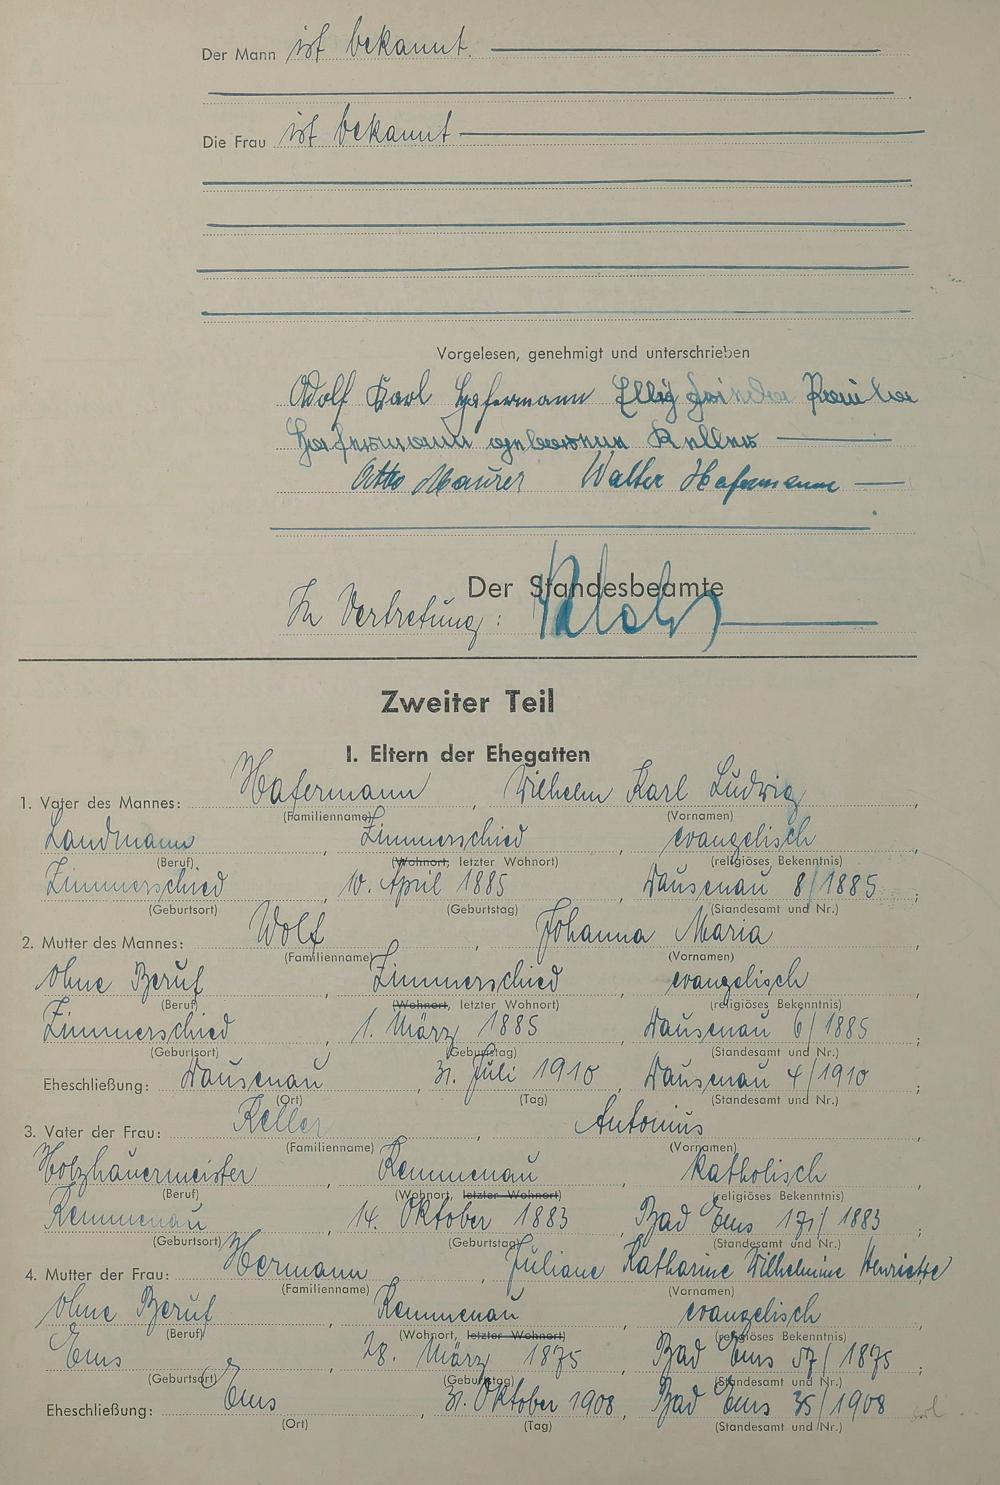 Der Mann ist bekannt.
Die Frau ist bekannt
Vorgelesen, genehmigt und unterschrieben
Adolf Karl Hafermann Elly
Hafermann geborene Keller
Otto Maurer Walter Hafermann
Der Standesbeamte
In Vertretung:
Zweiter Teil
I. Eltern der Ehegatten
1. Vater des Mannes: Hafermann, Wilhelm Karl Ludwig,
(Familienname) (Vornamen)
Landmann, Zimmerschied, evangelisch
(Beruf) (Wohnort, letzter Wohnort) (religiöses Bekenntnis)
Zimmerschied, 10. April 1885, Dausenau 8/1885;
(Geburtsort) (Geburtstag) (Standesamt und Nr.)
2. Mutter des Mannes: Wolf, Johanna Maria,
(Familienname) (Vornamen)
ohne Beruf, Zimmerschied, evangelisch
(Beruf) (Wohnort, letzter Wohnort) (religiöses Bekenntnis)
Zimmerschied, 1. März 1885, Dausenau 6/1885;
(Geburtsort) (Geburtstag) (Standesamt und Nr.)
Eheschließung: Dausenau, 31. Juli 1910, Dausenau 4/1910;
(Ort) (Tag) (Standesamt und Nr.)
3. Vater der Frau: Keller, Antonius,
(Familienname) (Vornamen)
Holzhauermeister, Kemmenau, katholisch
(Beruf) (Wohnort, letzter Wohnort) (religiöses Bekenntnis)
Kemmenau, 14. Oktober 1883, Bad Ems 171/1883;
(Geburtsort) (Geburtstag) (Standesamt und Nr.)
4. Mutter der Frau: Hermann, Juliane Katharine Wilhelmine Henriette
(Familienname) (Vornamen)
ohne Beruf, Kemmenau, evangelisch
(Beruf) (Wohnort, letzter Wohnort) (religiöses Bekenntnis)
Ems, 28. März 1875, Bad Ems 57/1875;
(Geburtsort) (Geburtstag) (Standesamt und Nr.)
Eheschließung: Ems, 31. Oktober 1908, Bad Ems 35/1908
(Ort) (Tag) (Standesamt und Nr.)